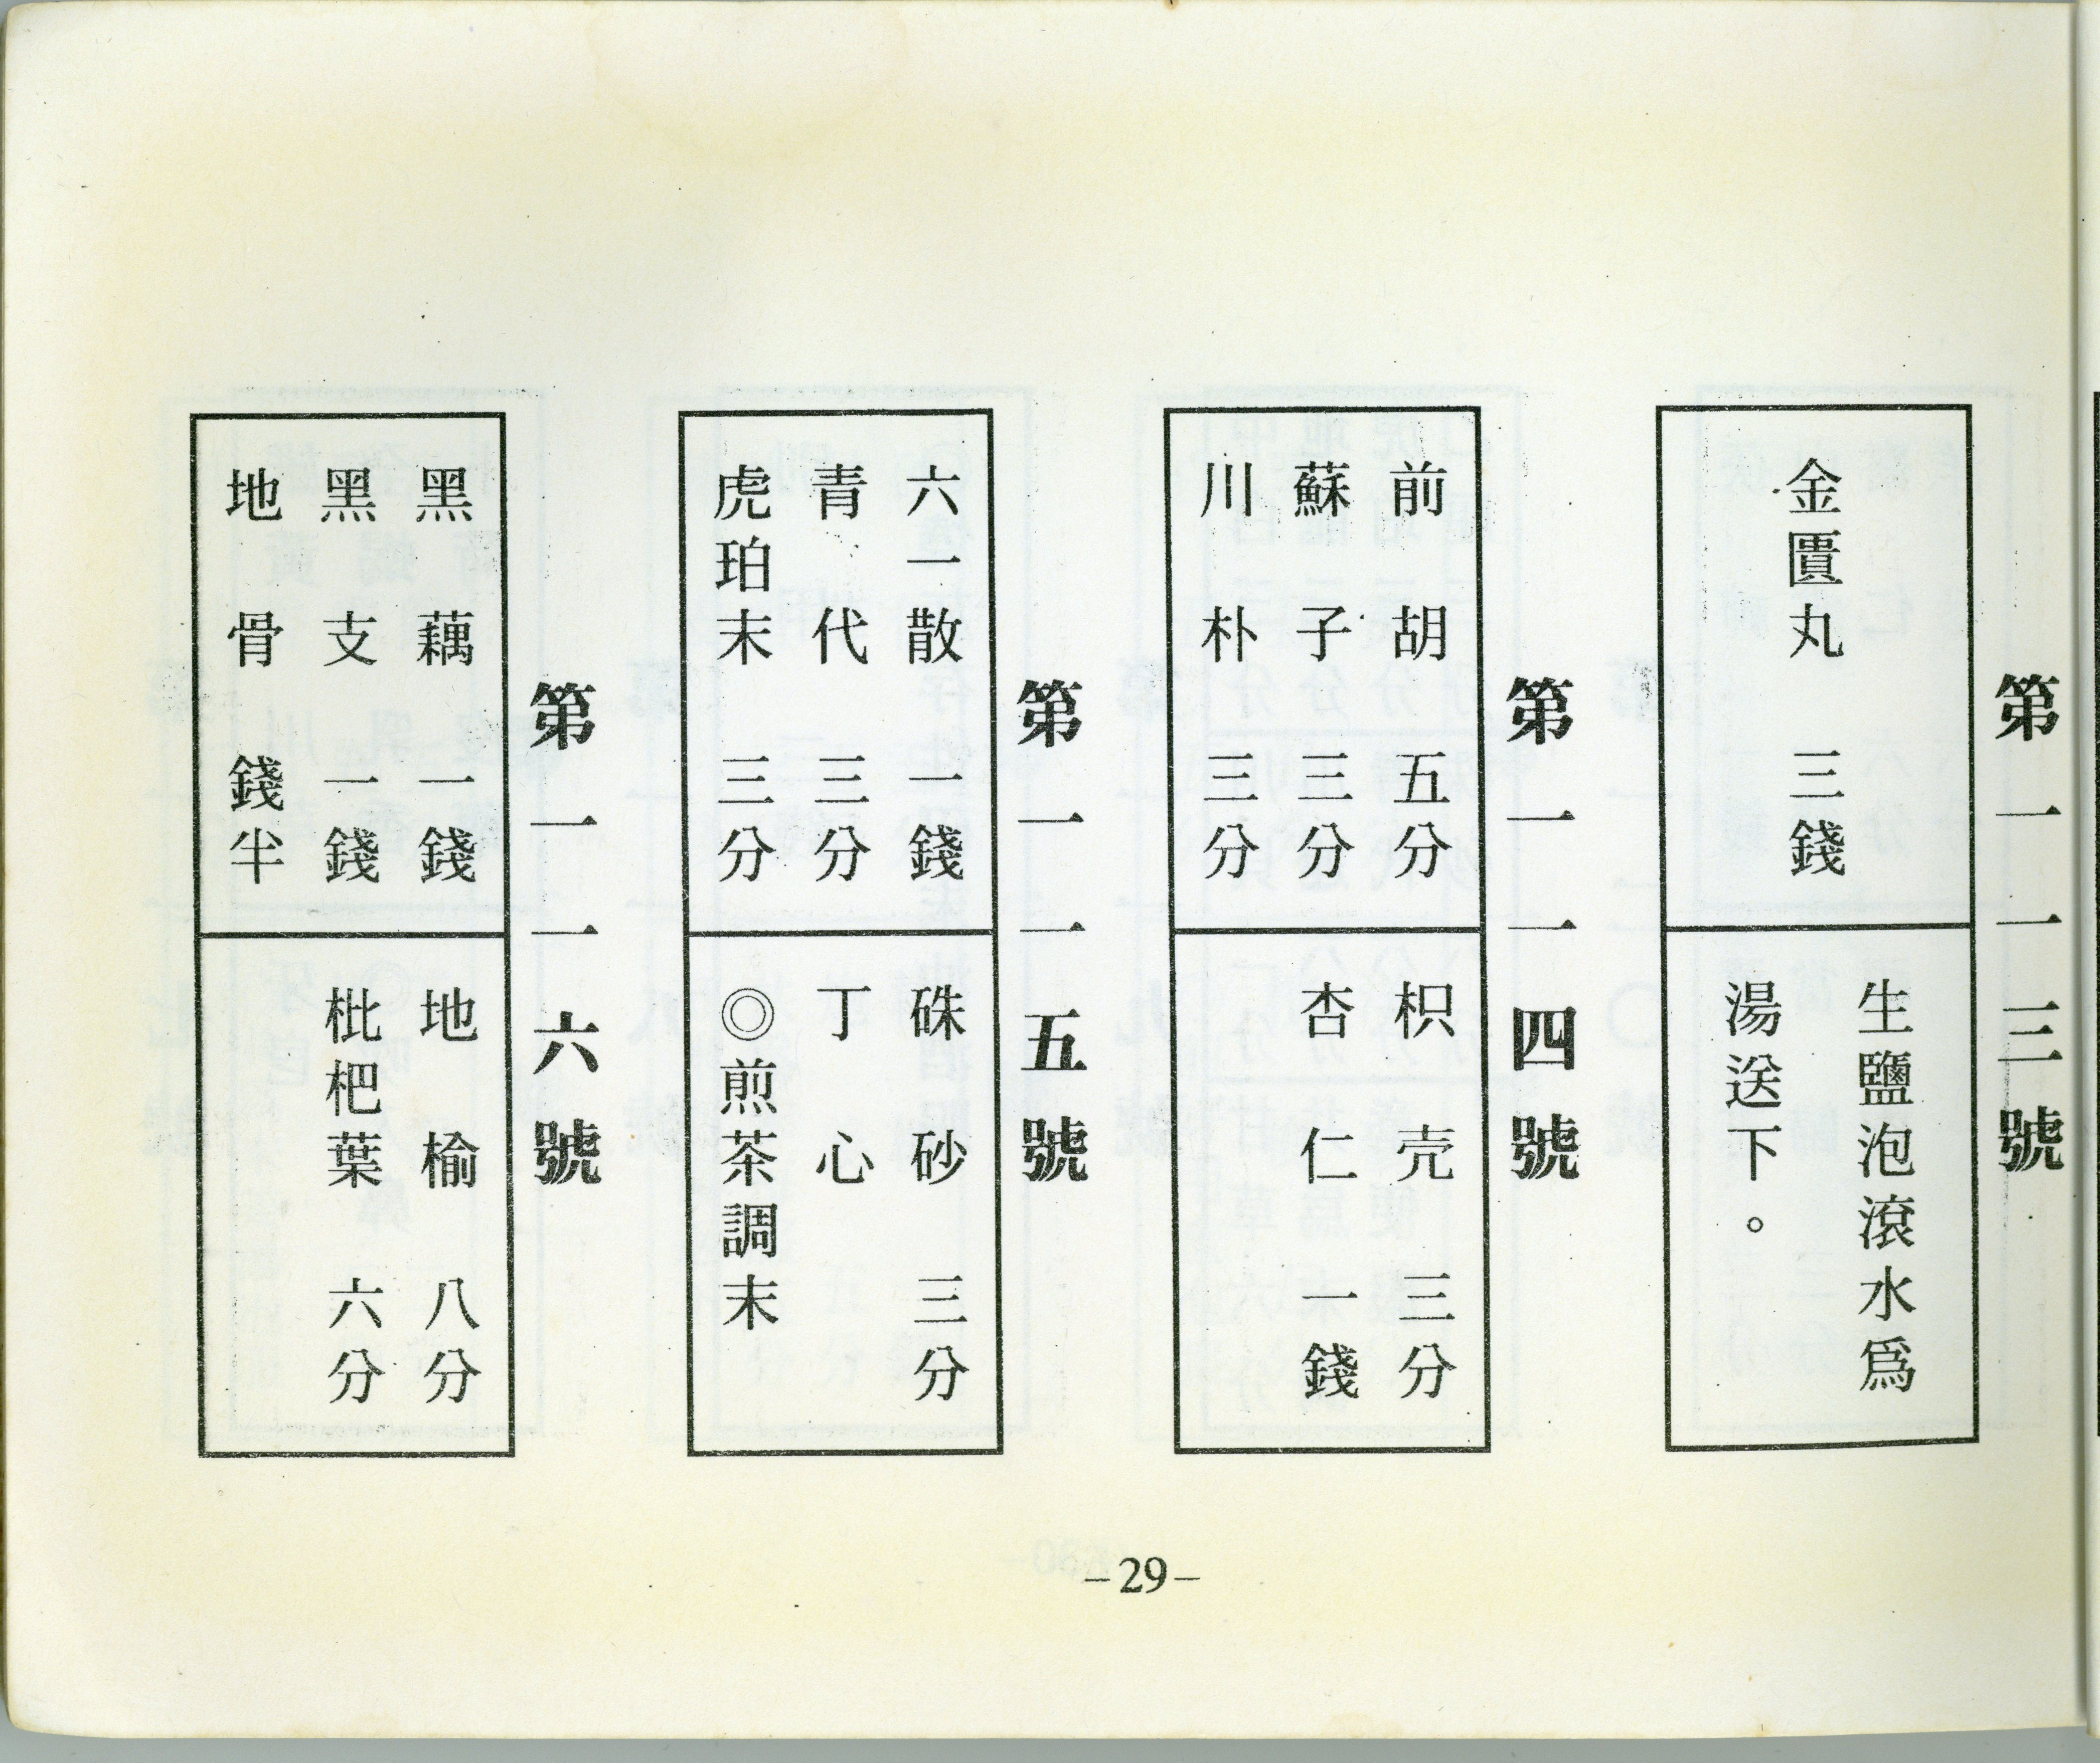 第一一三號
金匱丸　三錢
生鹽泡滾水爲
湯送下。
第一一四號
前胡　五分
蘇子　三分
川朴　三分
枳壳　三分
杏仁　一錢
第一一五號
六一散　一錢
青代　三分
虎珀末　三分
硃砂　三分
丁心
◎煎茶調末
第一一六號
黑藕　一錢
黑支　一錢
地骨　錢半
地榆　八分
枇杷葉　六分
–29–